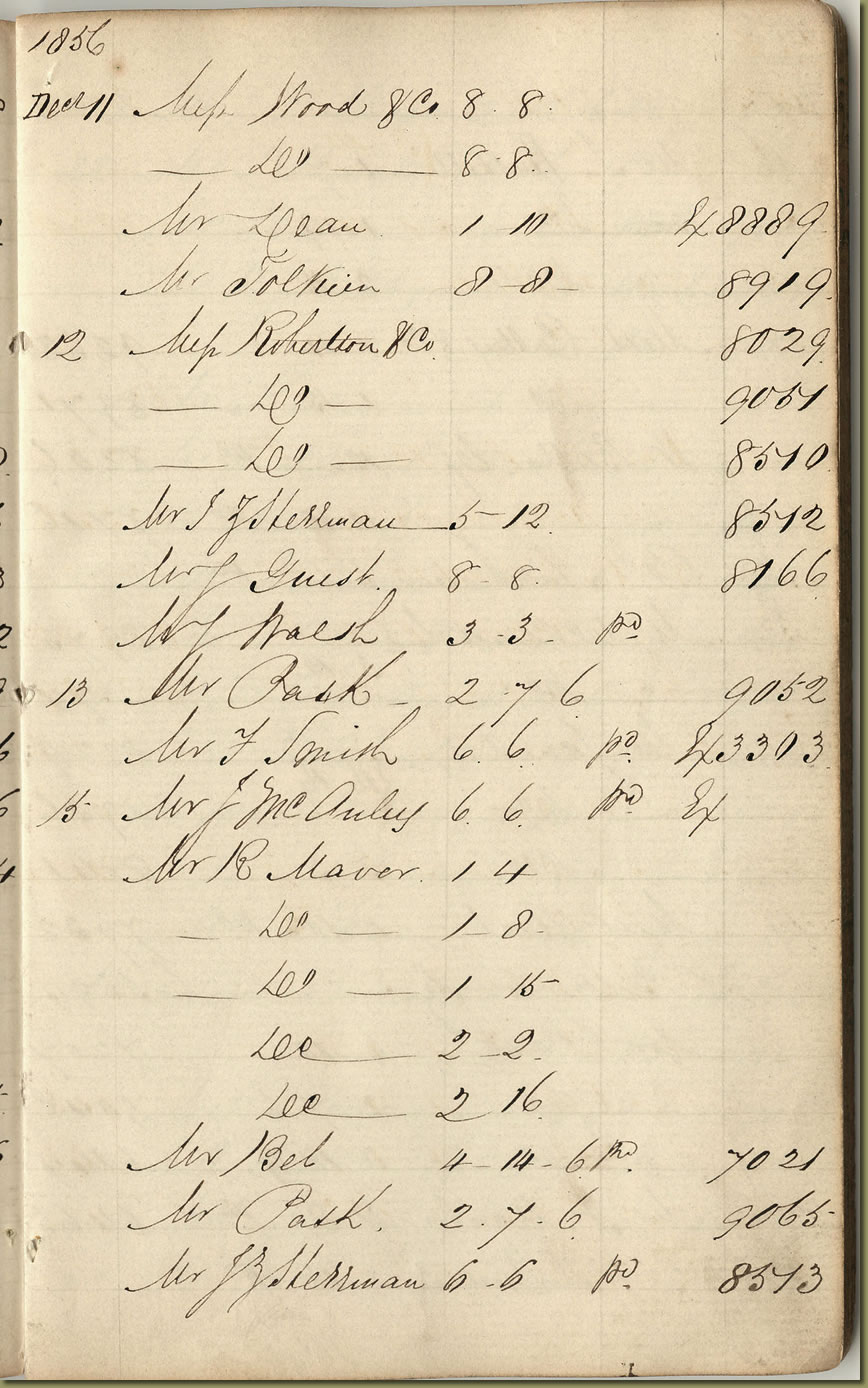 1856
Decr 11 Mess Wood & Co 8 . 8 .
— Do — 8 - 8 ..
Mr Dean 1 - 10 Ex 8889
Mr Tolkien 8 - 8 - 8919
12 Mess Robertson & Co 8029
— Do — 9051
— Do — 8510
Mr I Z Sterrman 5 - 12 8512
Mr J Guest 8 - 8 8166
Mr J Walsh 3 - 3 - pd
13 Mr Pask - 2 - 7 6 9052
Mr F Smith 6 . 6 pd Ex 3303
15 Mr J McAuley 6 . 6 . pd Ex
Mr R Maver 1 4
— Do — 1 - 8 -
— Do — 1 15
Do 2 - 2 .
Do 2 16
Mr Bel 4 - 14 - 6 Pd 7021
Mr Pask . 2 . 7 . 6 9065
Mr J Z Sterrman 6 - 6 pd 8513